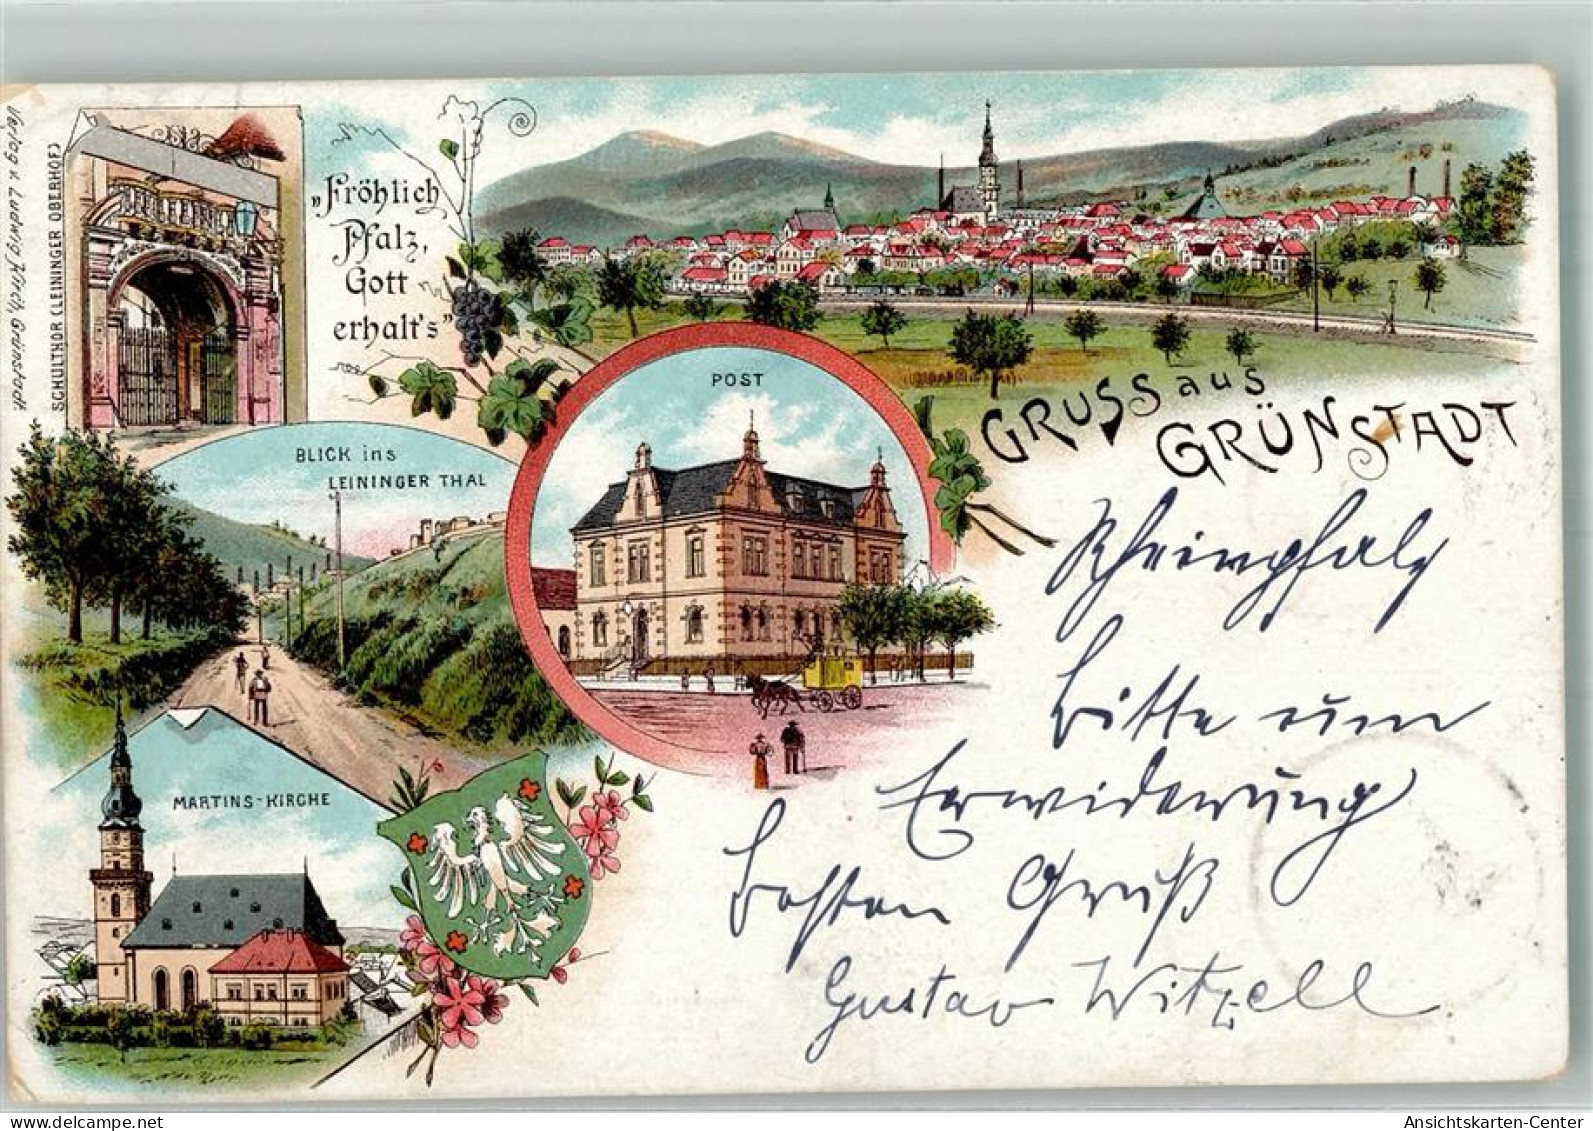 Verlag v. Ludwig Krich, Grünstadt.
SCHULTHOR (LEININGER OBERHOF)
„Fröhlich
Pfalz,
Gott
erhalt's"
GRUSS aus
GRÜNSTADT
POST
BLICK ins
LEININGER THAL
MARTINS-KIRCHE
Rheinpfalz
Bitte um
Erwiderung
Besten Gruß
Gustav Witzell.
Ansichtskarten-Center